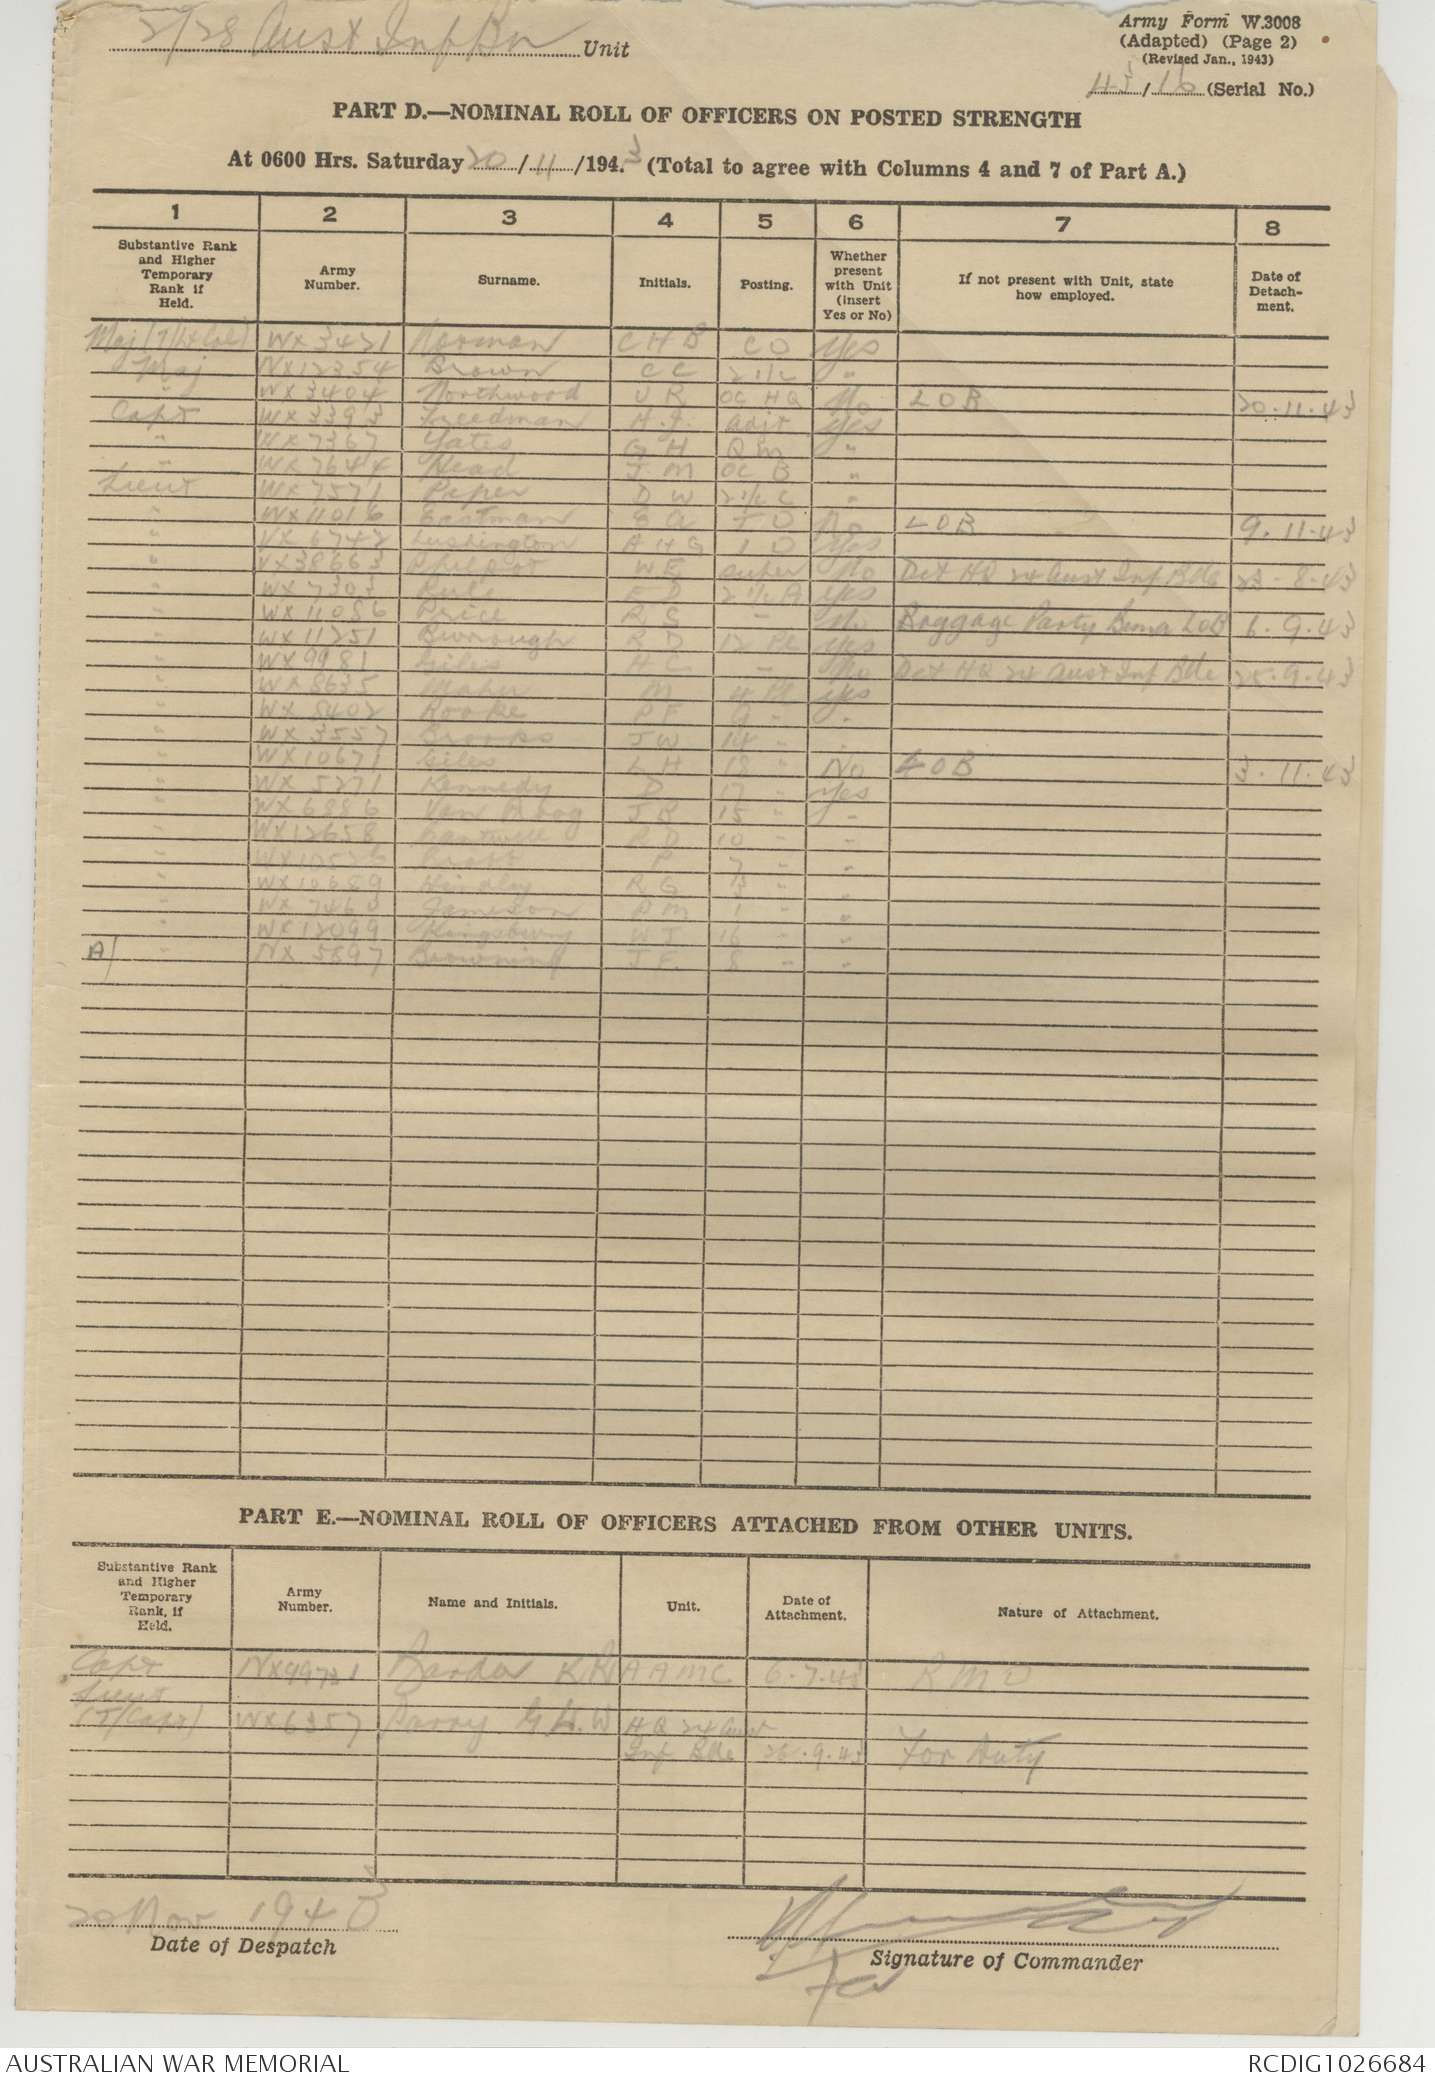 2/28 Aust Inf Bn Unit
Army Form W.3008
(Adapted) (Page 2)
(Revised Jan., 1943)
43/16 (Serial No.)
PART D.—NOMINAL ROLL OF OFFICERS ON POSTED STRENGTH
At 0600 Hrs. Saturday 20/11/1943 (Total to agree with Columns 4 and 7 of Part A.)
1 2 3 4 5 6 7 8
Substantive Rank and Higher Temporary Rank if Held. Army Number. Surname. Initials. Posting. Whether present with Unit (insert Yes or No) If not present with Unit, state how employed. Date of Detachment.
Maj (T/Lt Col) WX3421 Norman C H B CO Yes
Maj NX12354 Brown C C 2 i/c "
" WX3404 Northwood J R OC HQ No LOB 20.11.43
Capt WX3393 Freedman H.J. Adjt Yes
" WX7367 Yates G H QM "
" WX7644 Head J M OC B "
Lieut WX7571 Paper D W 2 i/c C "
" WX11016 Eastman E A I O No LOB 9.11.43
" VX6742 Lushington A H G T O Yes
" VX38663 Philpot W E super No Det HQ 24 Aust Inf Bde 23.8.43
" WX7303 Rule E D 2 i/c A Yes
" WX11086 Price R S - No Baggage Party Buna LOB 6.9.43
" WX11251 Burrough R D 12 Pl Yes
" WX9981 Giles H C - No Det HQ 24 Aust Inf Bde 25.9.43
" WX8635 Maher M 4 Pl Yes
" WX5402 Rooke P F 9 " "
" WX3557 Brooks J W 14 "
" WX10671 Giles L H 18 " No LOB 3.11.43
" WX5271 Kennedy D 17 " Yes
" WX6886 J B 15 " "
" WX12658 P D 10 " "
" P 7 " "
" WX10689 Hindley R G " "
" WX7460 Jameson P M 1 " "
" WX12099 Kingsbury W J 16 " "
A/ " NX5897 Browning J F. 8 " "
PART E.—NOMINAL ROLL OF OFFICERS ATTACHED FROM OTHER UNITS.
Substantive Rank and Higher Temporary Rank, if Held. Army Number. Name and Initials. Unit. Date of Attachment. Nature of Attachment.
Capt NX99721 K R AAMC 6.7.43 RMO
Lieut
(T/Capt) WX6357 Parry G.H.W HQ 24 Aust
Inf Bde 26.9.43 For Duty
20 Nov 1943
Date of Despatch
Signature of Commander
AUSTRALIAN WAR MEMORIAL RCDIG1026684